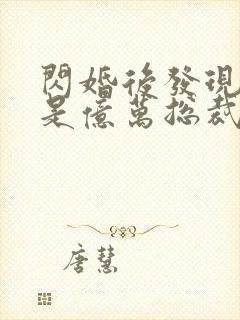 閃婚後發現
是億萬總裁
唐慧